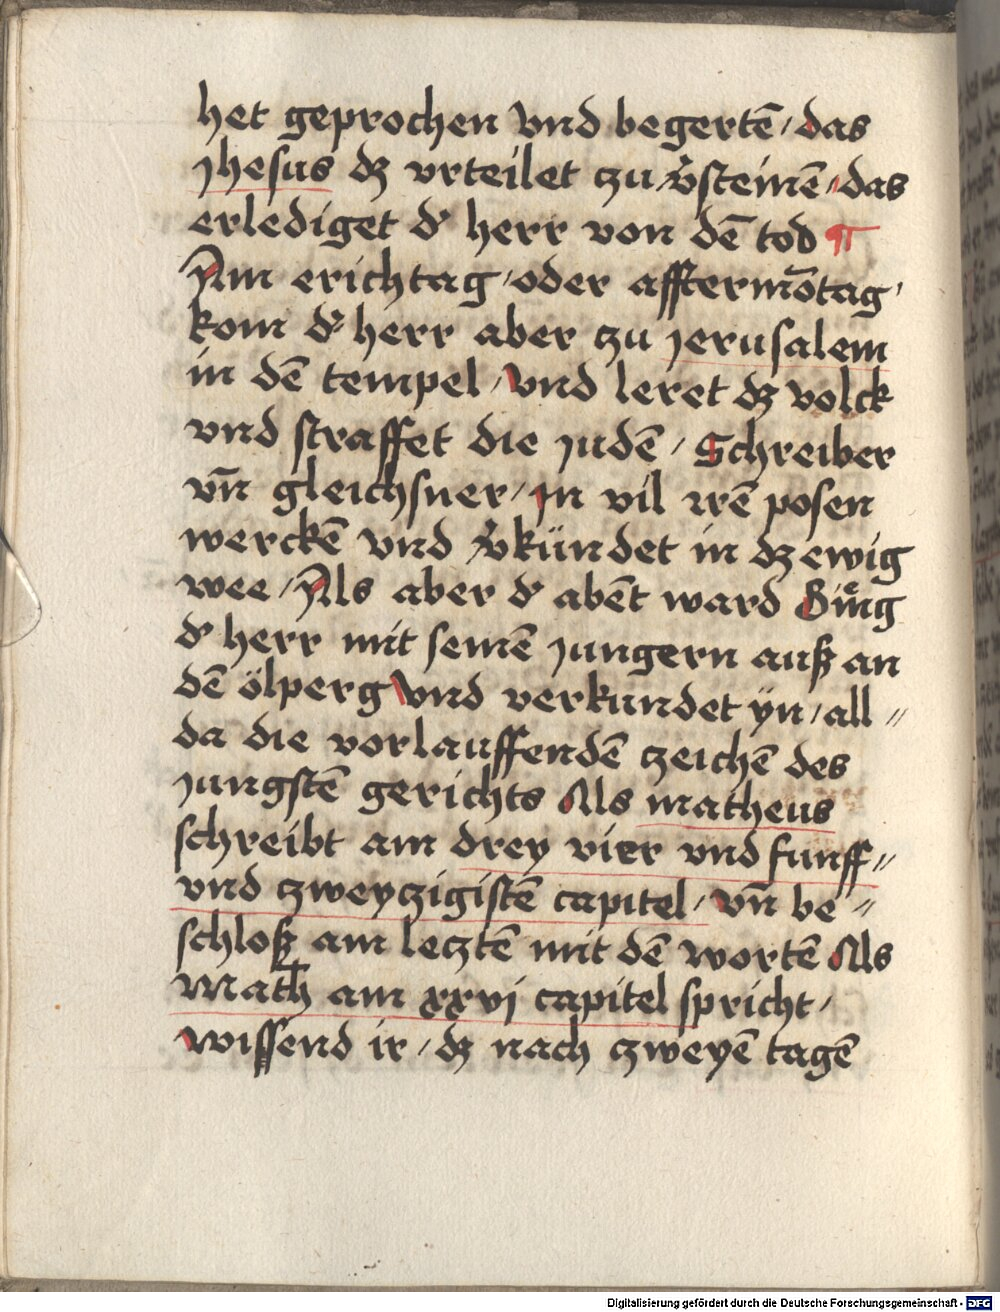 het geprochen vnd begertē / das
Jhesus dz vrteilet zu v̉steinē / das
erlediget d' herr von dē tod ¶
Am erichtag / oder afftermōtag /
kom d' herr aber zu jerusalem
in dē tempel / vnd leret dz volck
vnd straffet die judē / Schreiber
vn̄ gleichsner / jn vil irē posen
werckē vnd v̉kündet in dz ewig
wee / Als aber d' abēt ward Gieng
d' herr mit seinē jungern auß an
dē ölperg vnd verkundet ÿn / all //
da die vorlauffendē zeichē des
jungstē gerichts Als matheus
schreibt am drey vier vnd funff //
vnd czweyczigistē capitel / vn̄ be //
schloß am lecztē mit dē wortē Als
Math am xxvj capitel spricht /
wissend ir / dz nach czweyē tagē
Digitalisierung gefördert durch die Deutsche Forschungsgemeinschaft - DFG